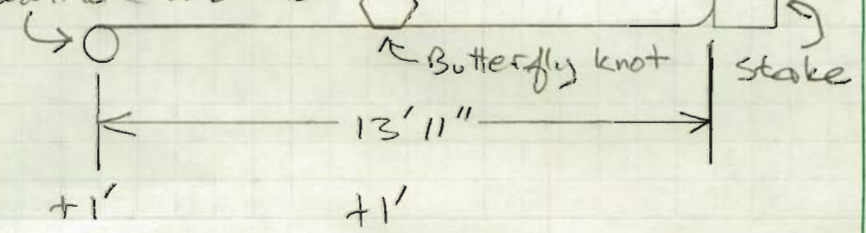 Butterfly knot
stake
13'11"
+1' +1'